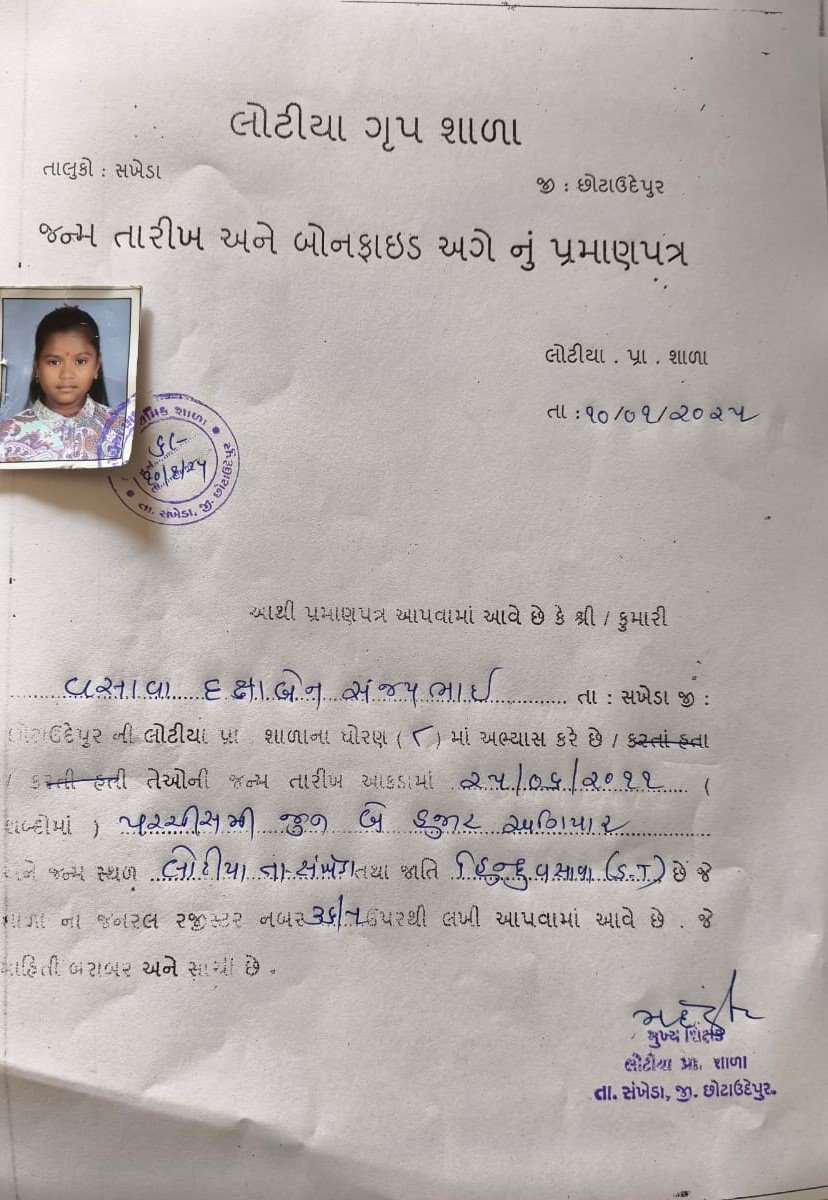 લોટીયા ગૃપ શાળા
તાલુકો : સખેડા
જી : છોટાઉદેપુર
જન્મ તારીખ અને બોનફાઇડ અગે નું પ્રમાણપત્ર
લોટીયા . પ્રા . શાળા
તા : ૧૦/૦૧/૨૦૨૫
શાળા
તા. સંખેડા, જી. છોટાઉદેપુર
આથી પ્રમાણપત્ર આપવામાં આવે છે કે શ્રી / કુમારી
વસાવા દક્ષાબેન સંજયભાઈ તા : સખેડા જી :
છોટાઉદેપુર ની લોટીયા પ્રા . શાળાના ધોરણ ( ૮ ) માં અભ્યાસ કરે છે / કરતાં હતા
/ કરતી હતી તેઓની જન્મ તારીખ આકડામાં ૨૫/૦૬/૨૦૧૧ (
શબ્દોમાં ) પચ્ચીસમી જુન બે હજાર અગિયાર
અને જન્મ સ્થળ લોટીયા તા-સંખેડા તથા જાતિ હિન્દુ વસાવા (S.T) છે જે
શાળા ના જનરલ રજીસ્ટર નબર ઉપરથી લખી આપવામાં આવે છે . જે
માહિતી બરાબર અને સાચી છે .
મુખ્ય શિક્ષક
લોટીયા પ્રા. શાળા
તા. સંખેડા, જી. છોટાઉદેપુર.